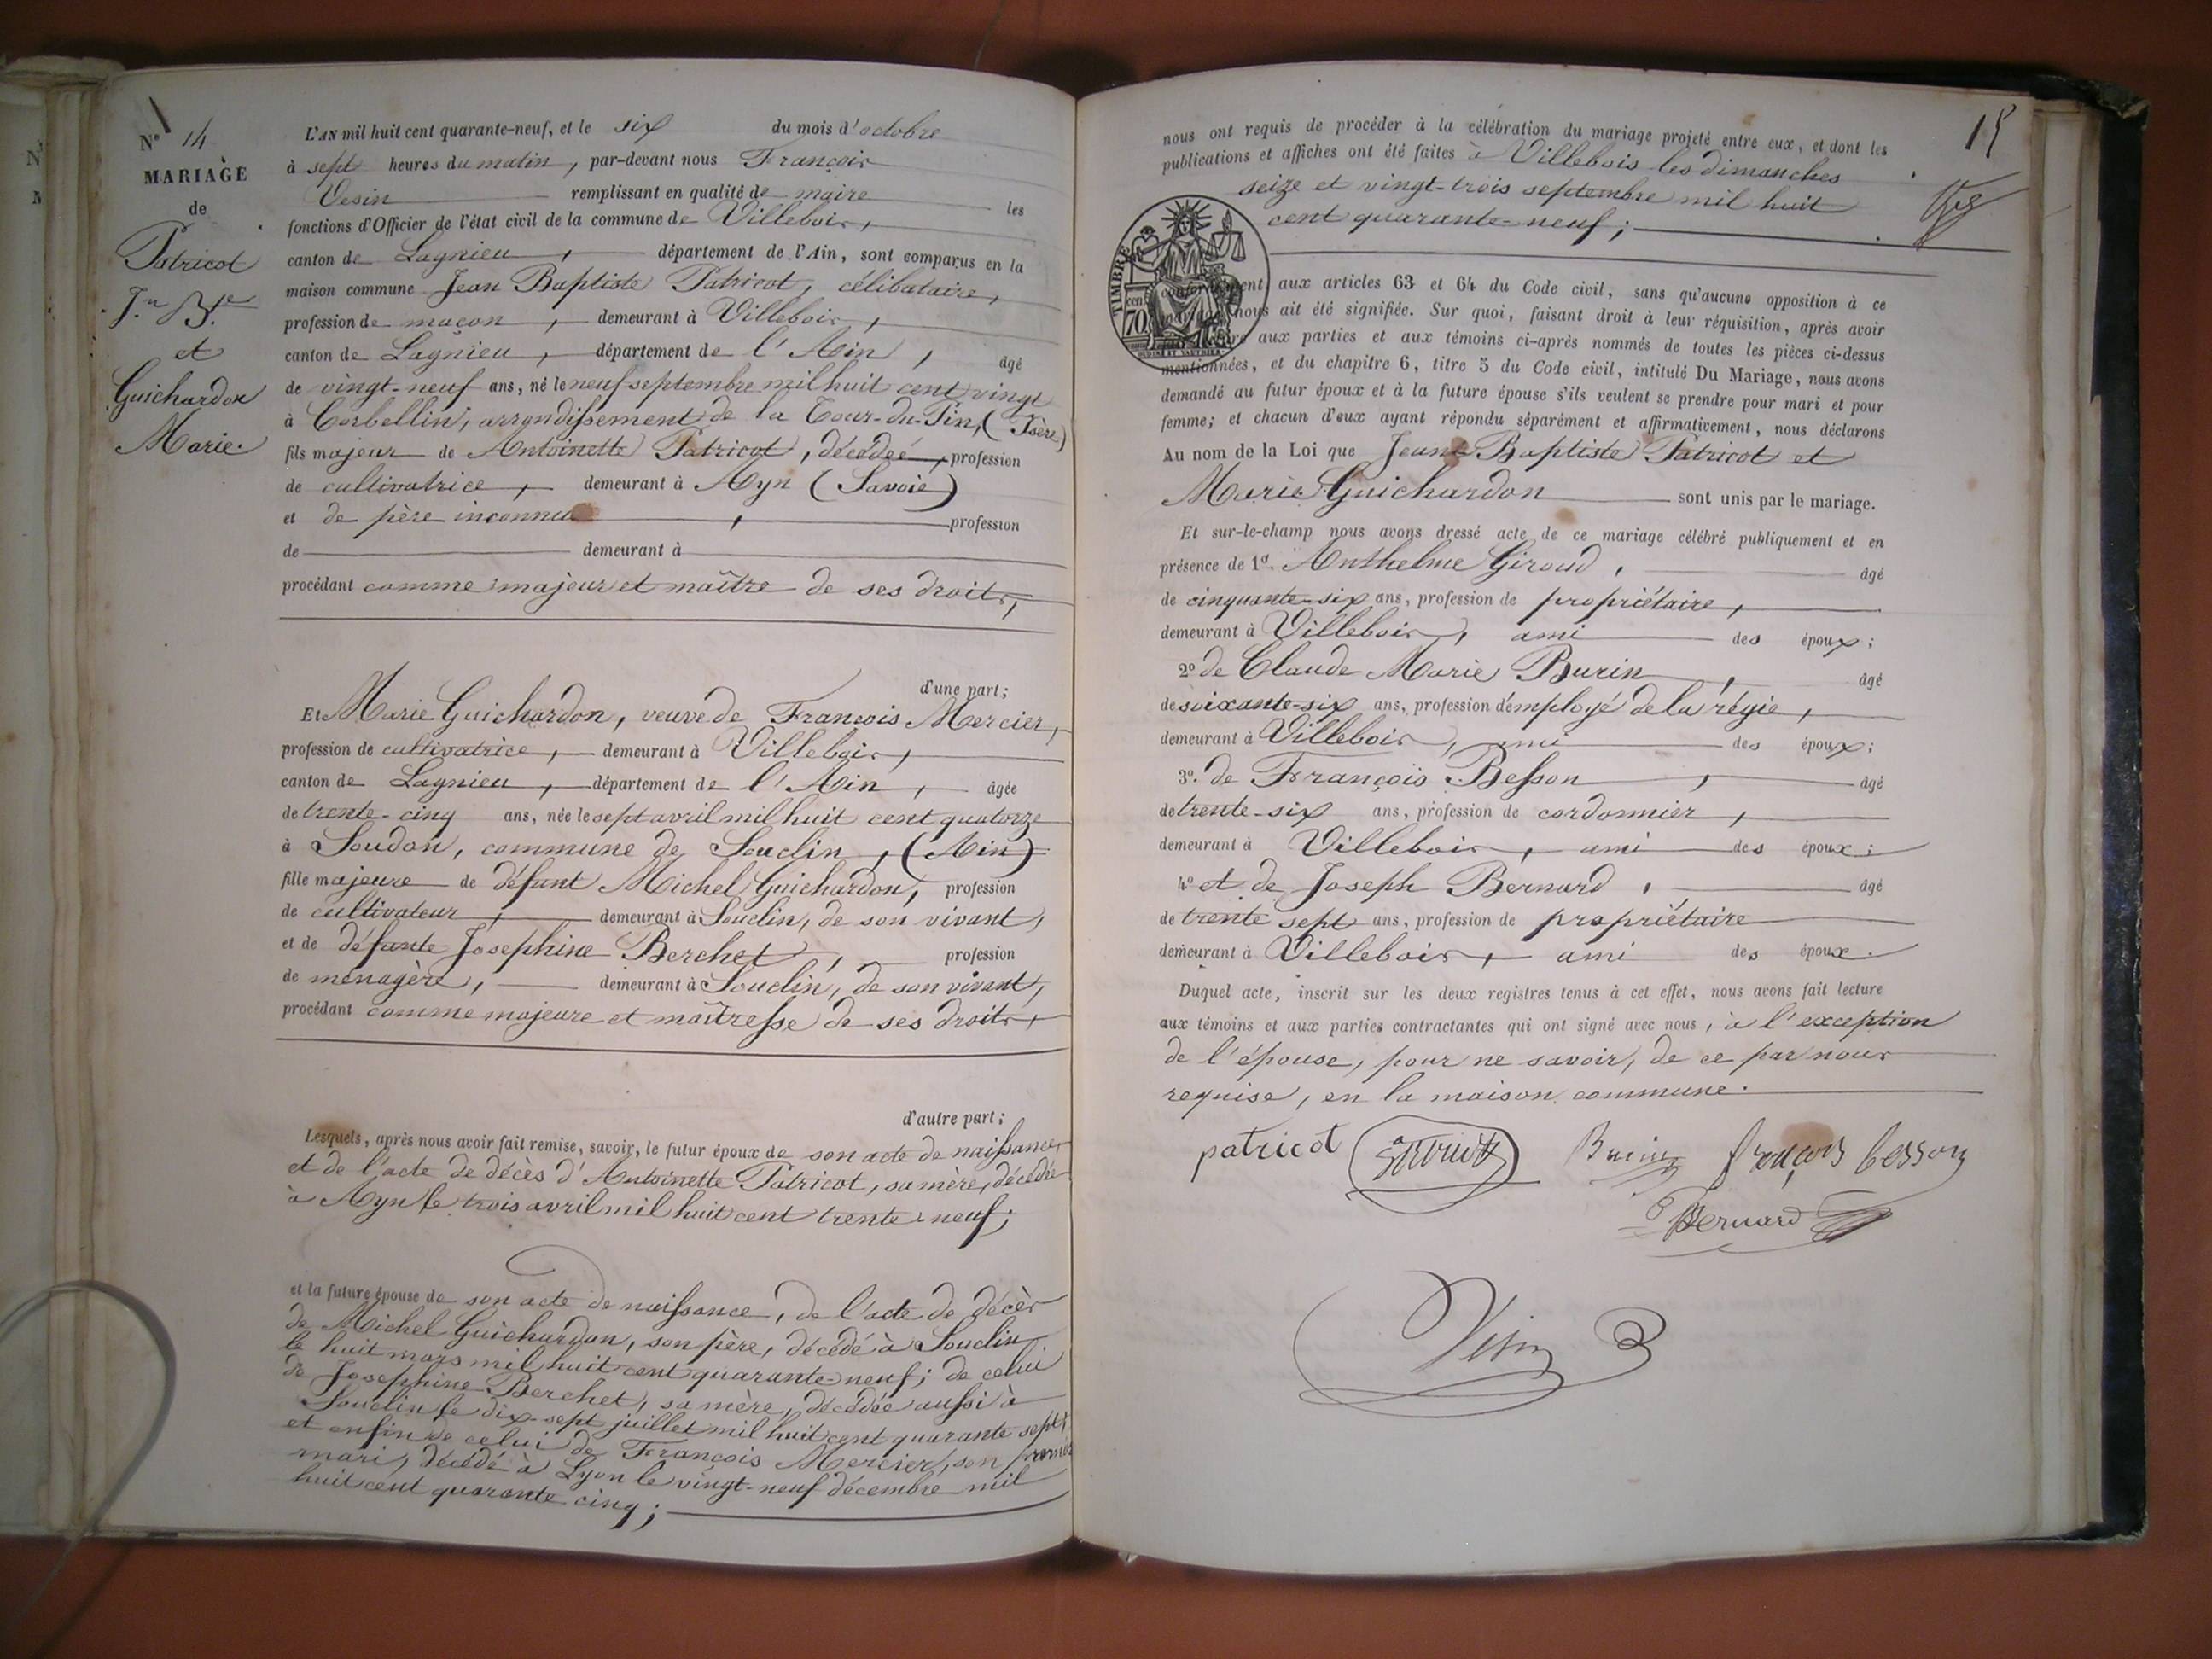 N° 14
MARIAGE
de
Patricot
Jn Bte
et
Guichardon
Marie.
L'AN mil huit cent quarante-neuf, et le six du mois d'octobre
à sept heures du matin, par-devant nous François
Vesin remplissant en qualité de maire les
fonctions d'Officier de l'état civil de la commune de Villebois,
canton de Lagnieu, département de l'Ain, sont comparus en la
maison commune Jean Baptiste Patricot, célibataire,
profession de maçon, demeurant à Villebois,
canton de Lagnieu, département de l'Ain, âgé
de vingt-neuf ans, né le neuf septembre mil huit cent vingt
à Corbellin, arrondissement de la Tour-du-Pin, (Isère)
fils majeur de Antoinette Patricot, décédée, profession
de cultivatrice, demeurant à Ayn (Savoie)
et de père inconnu, profession
de demeurant à
procédant comme majeur et maître de ses droits,
d'une part;
Et Marie Guichardon, veuve de François Mercier,
profession de cultivatrice, demeurant à Villebois,
canton de Lagnieu, département de l'Ain, âgée
de trente-cinq ans, née le sept avril mil huit cent quatorze
à Soudon, commune de Souclin, (Ain)
fille majeure de défunt Michel Guichardon, profession
de cultivateur, demeurant à Souclin, de son vivant,
et de défunte Josephine Berchet, profession
de ménagère, demeurant à Souclin, de son vivant,
procédant comme majeure et maîtresse de ses droits,
d'autre part;
Lesquels, après nous avoir fait remise, savoir, le futur époux de son acte de naissance,
et de l'acte de décès d'Antoinette Patricot, sa mère, décédée
à Ayn le trois avril mil huit cent trente-neuf;
et la future épouse de son acte de naissance, de l'acte de décès
de Michel Guichardon, son père, décédé à Souclin
le huit mars mil huit cent quarante-neuf; de celui
de Josephine Berchet, sa mère, décédée aussi à
Souclin le dix-sept juillet mil huit cent quarante sept;
et enfin de celui de François Mercier, son premier
mari, décédé à Lyon le vingt-neuf décembre mil
huit cent quarante cinq;
15
nous ont requis de procéder à la célébration du mariage projeté entre eux, et dont les
publications et affiches ont été faites à Villebois les dimanches
seize et vingt-trois septembre mil huit
cent quarante-neuf;
TIMBRE
70
conformément aux articles 63 et 64 du Code civil, sans qu'aucune opposition à ce
nous ait été signifiée. Sur quoi, faisant droit à leur réquisition, après avoir
aux parties et aux témoins ci-après nommés de toutes les pièces ci-dessus
mentionnées, et du chapitre 6, titre 5 du Code civil, intitulé Du Mariage, nous avons
demandé au futur époux et à la future épouse s'ils veulent se prendre pour mari et pour
femme; et chacun d'eux ayant répondu séparément et affirmativement, nous déclarons
Au nom de la Loi que Jean Baptiste Patricot et
Marie Guichardon sont unis par le mariage.
Et sur-le-champ nous avons dressé acte de ce mariage célébré publiquement et en
présence de 1° Anthelme Giroud, âgé
de cinquante-six ans, profession de propriétaire,
demeurant à Villebois, ami des époux;
2° de Claude Marie Burin, âgé
de soixante-six ans, profession d'employé de la régie,
demeurant à Villebois, ami des époux;
3° de François Besson, âgé
de trente-six ans, profession de cordonnier,
demeurant à Villebois, ami des époux;
4° et de Joseph Bernard, âgé
de trente sept ans, profession de propriétaire
demeurant à Villebois, ami des époux.
Duquel acte, inscrit sur les deux registres tenus à cet effet, nous avons fait lecture
aux témoins et aux parties contractantes qui ont signé avec nous, à l'exception
de l'épouse, pour ne savoir, de ce par nous
requise, en la maison commune.
patricot Burin françois besson
Bernard
Vesin